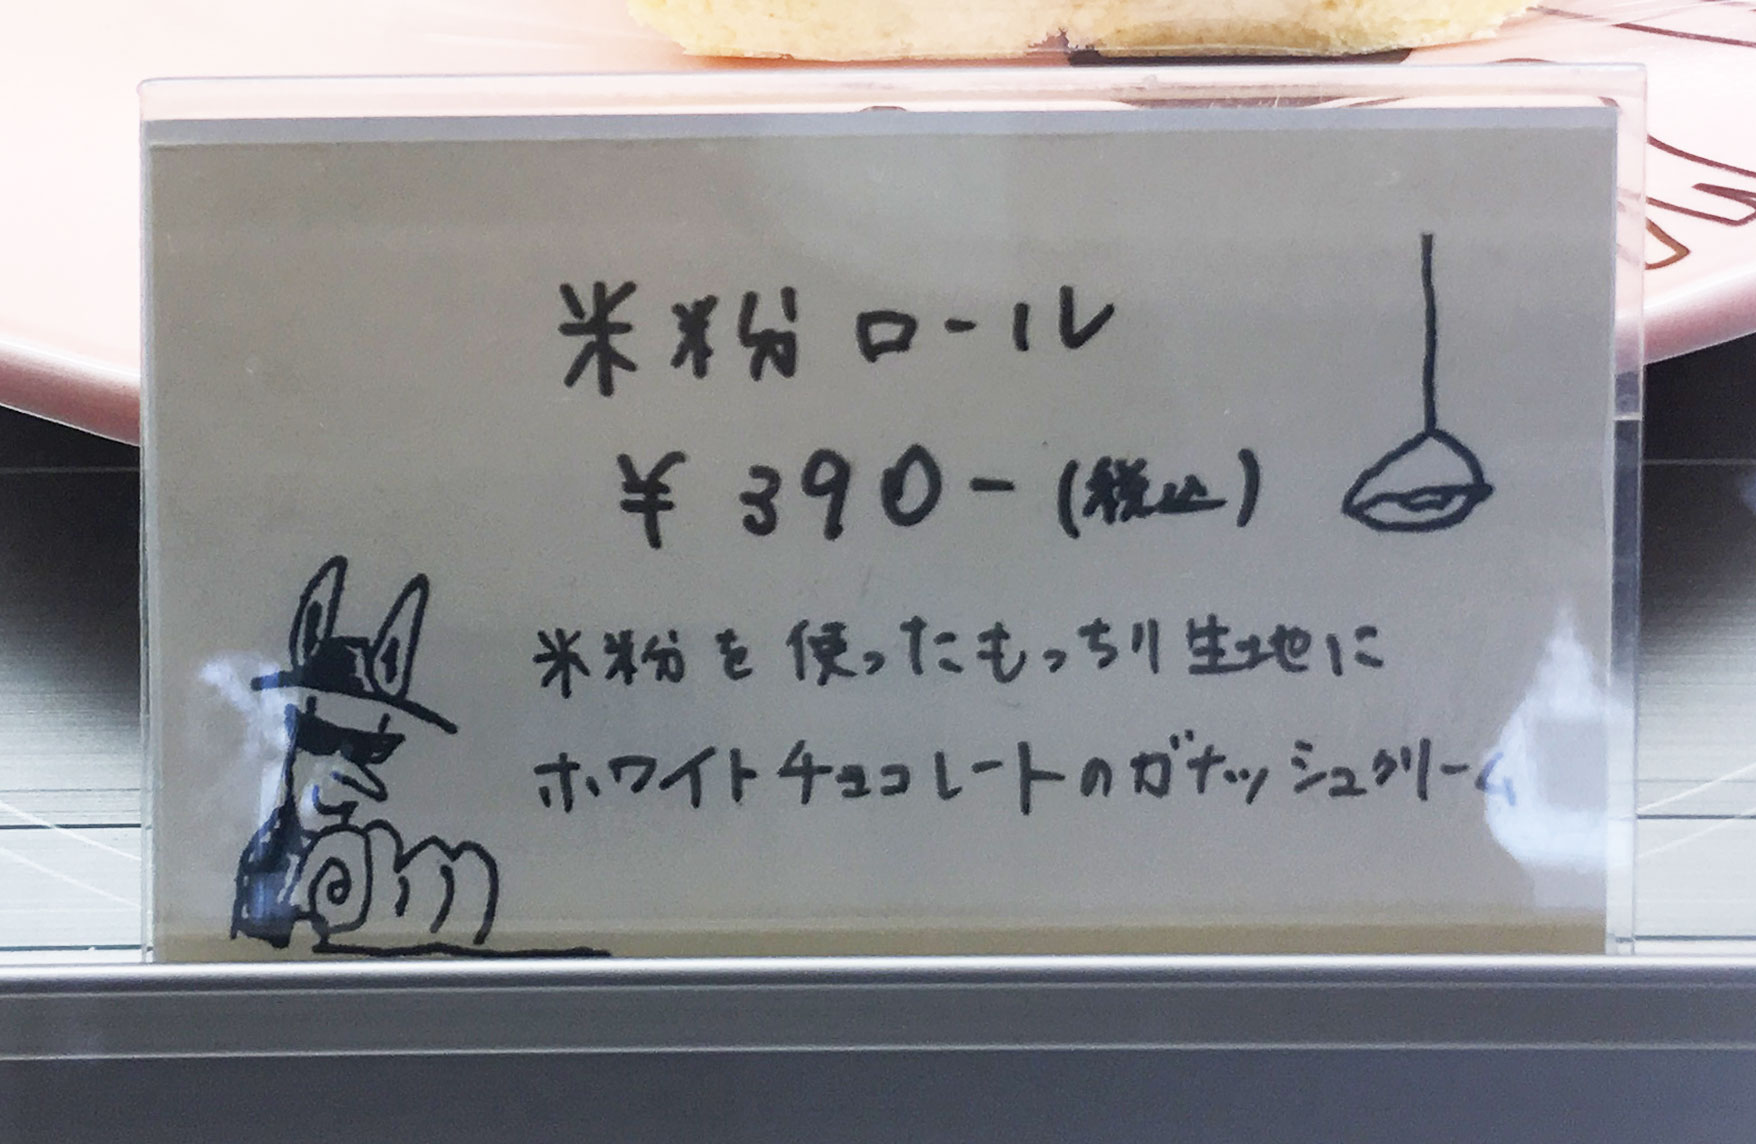 米粉ロール
¥390-(税込)
米粉を使ったもっちり生地に
ホワイトチョコレートのガナッシュクリーム